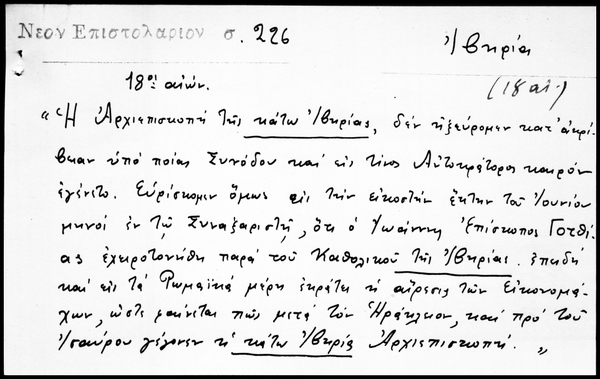 Νεον Επιστολαριον σ. 226
Ἰβηρία
18ος αἰών.
(18 αἰ.)
"Ἡ Ἀρχιεπισκοπή τῆς κάτω Ἰβηρίας, δέν ἠξεύρομεν κατ' ἀκρί-
βειαν ὑπό ποίας Συνόδου καί εἰς τίνος Αὐτοκράτορος καιρόν
ἐγένετο. Εὑρίσκομεν ὅμως εἰς τήν εἰκοστήν ἕκτην τοῦ Ἰουνίου
μηνός ἐν τῷ Συναξαριστῇ, ὅτι ὁ Ἰωάννης Ἐπίσκοπος Γοτθί-
ας ἐχειροτονήθη παρά τοῦ Καθολικοῦ τῆς Ἰβηρίας. ἐπειδή
καί εἰς τά Ῥωμαϊκά μέρη ἐκράτει ἡ αἵρεσις τῶν Εἰκονομά-
χων, ὥστε φαίνεται πῶς μετά τόν Ἡράκλειον, καί πρό τοῦ
Ἰσαύρου γέγονεν ἡ κάτω Ἰβηρία Ἀρχιεπισκοπή. "